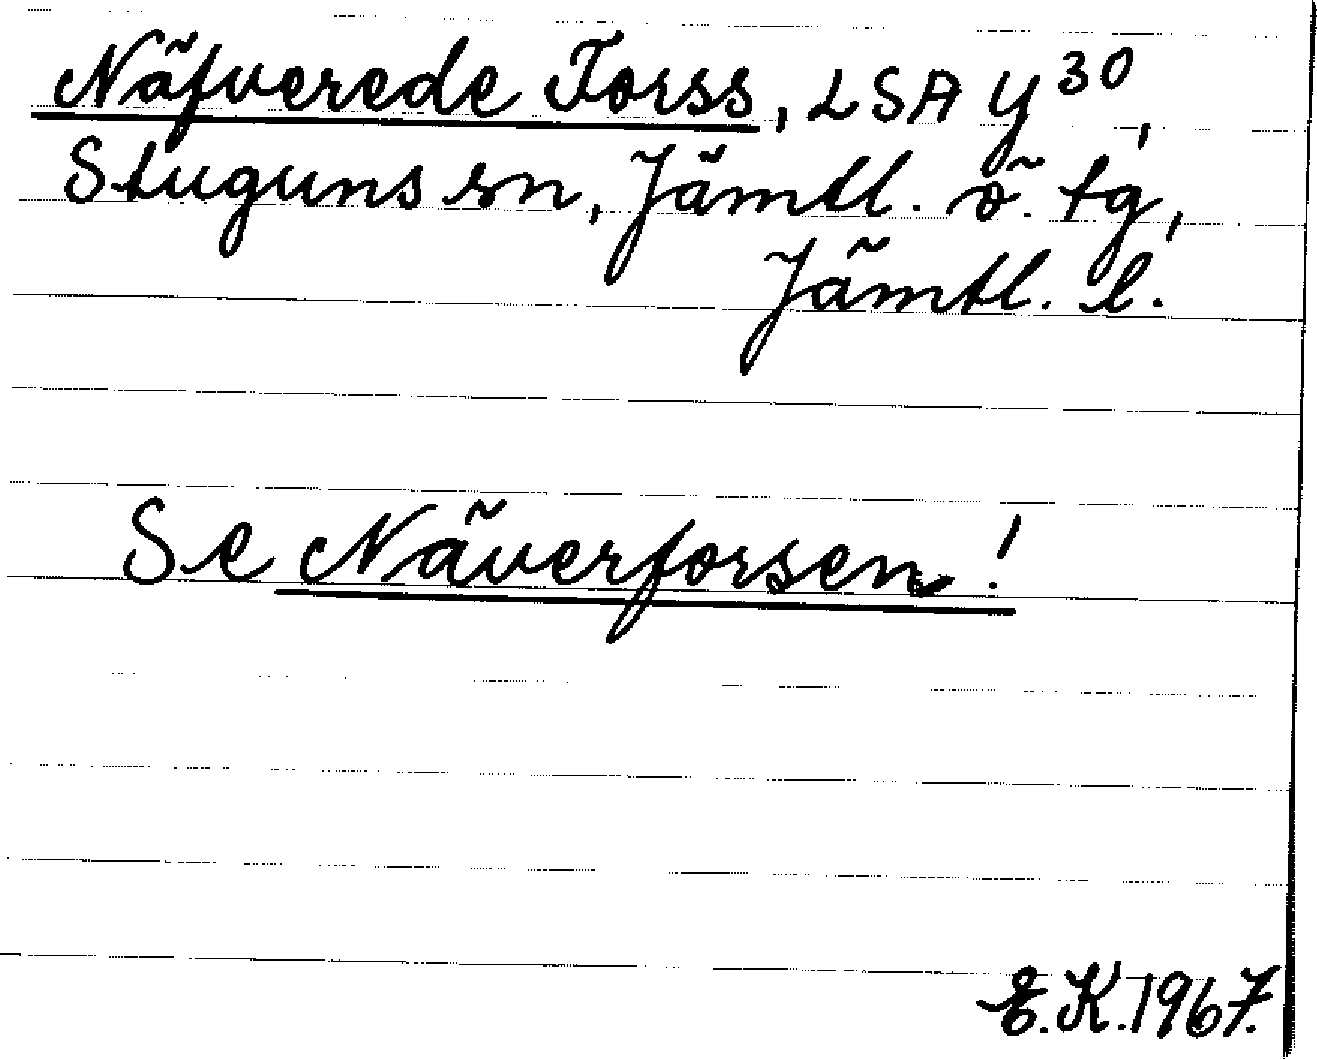 Näfverede Forss, LSA Y 30,
Stuguns sn, Jämtl. ö. tg,
Jämtl. l.
Se Näverforsen!
E.K.1967.